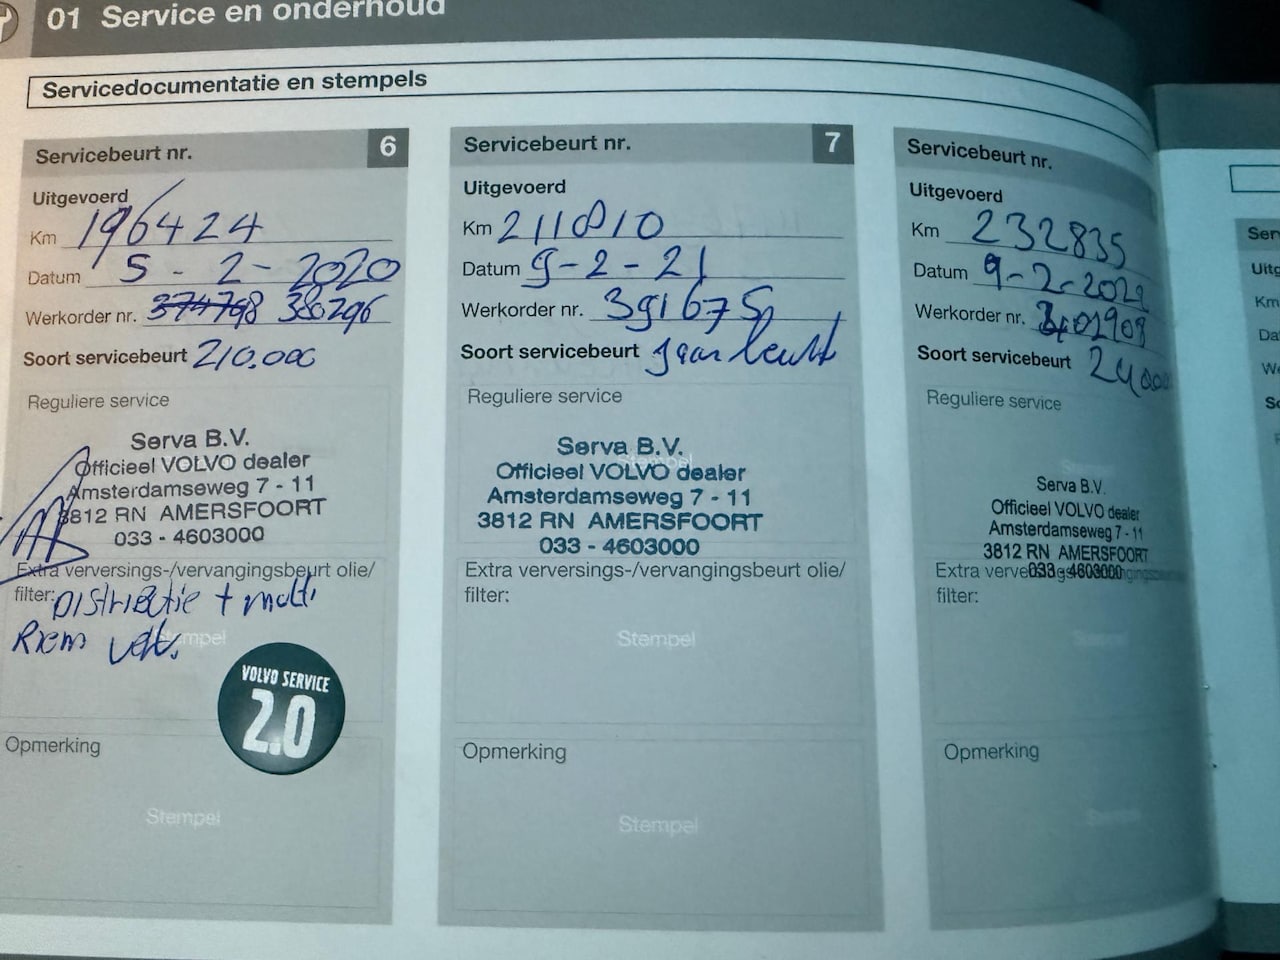 01 Service en onderhoud
Servicedocumentatie en stempels
Servicebeurt nr. 6
Uitgevoerd
Km 196424
Datum 5 - 2 - 2020
Werkorder nr. 374798 380296
Soort servicebeurt 210.000
Reguliere service
Serva B.V.
Officieel VOLVO dealer
Amsterdamseweg 7 - 11
3812 RN AMERSFOORT
033 - 4603000
Extra verversings-/vervangingsbeurt olie/
filter: Distributie + multi
Riem
Stempel
VOLVO SERVICE
2.0
Opmerking
Stempel
Servicebeurt nr. 7
Uitgevoerd
Km 211810
Datum 9-2-21
Werkorder nr. 391675
Soort servicebeurt Jaarbeurt
Reguliere service
Stempel
Serva B.V.
Officieel VOLVO dealer
Amsterdamseweg 7 - 11
3812 RN AMERSFOORT
033 - 4603000
Extra verversings-/vervangingsbeurt olie/
filter:
Stempel
Opmerking
Stempel
Servicebeurt nr.
Uitgevoerd
Km 232835
Datum 9-2-2022
Werkorder nr.
Soort servicebeurt
Reguliere service
Serva B.V.
Officieel VOLVO dealer
Amsterdamseweg 7 - 11
3812 RN AMERSFOORT
033 - 4603000
Extra
filter:
Opmerking